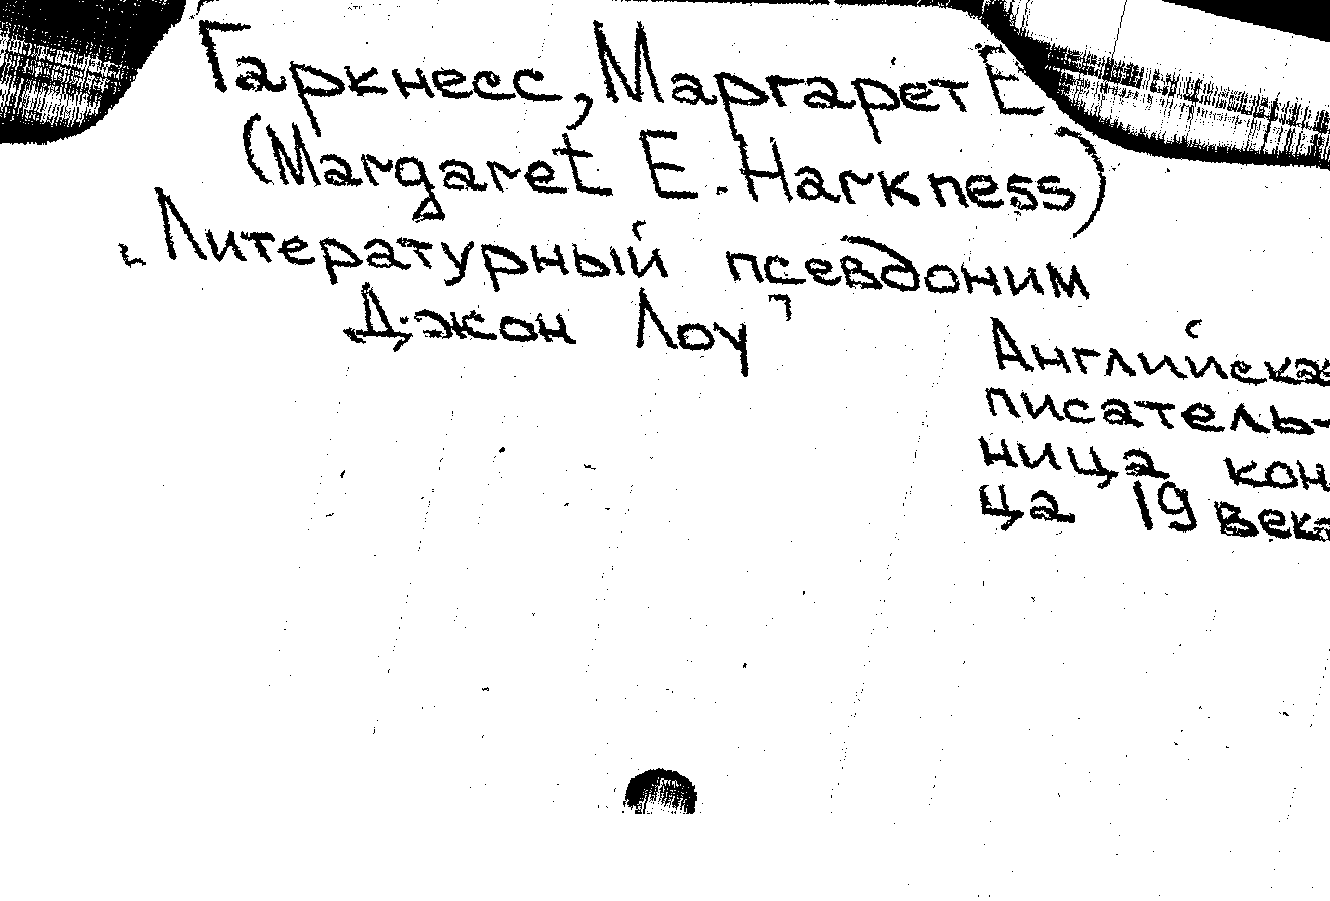 Гаркнесс, Маргарет Е
(Margaret E. Harkness)
"Литературный псевдоним
Джон Лоу"
Английская
писатель-
ница кон
ца 19 века